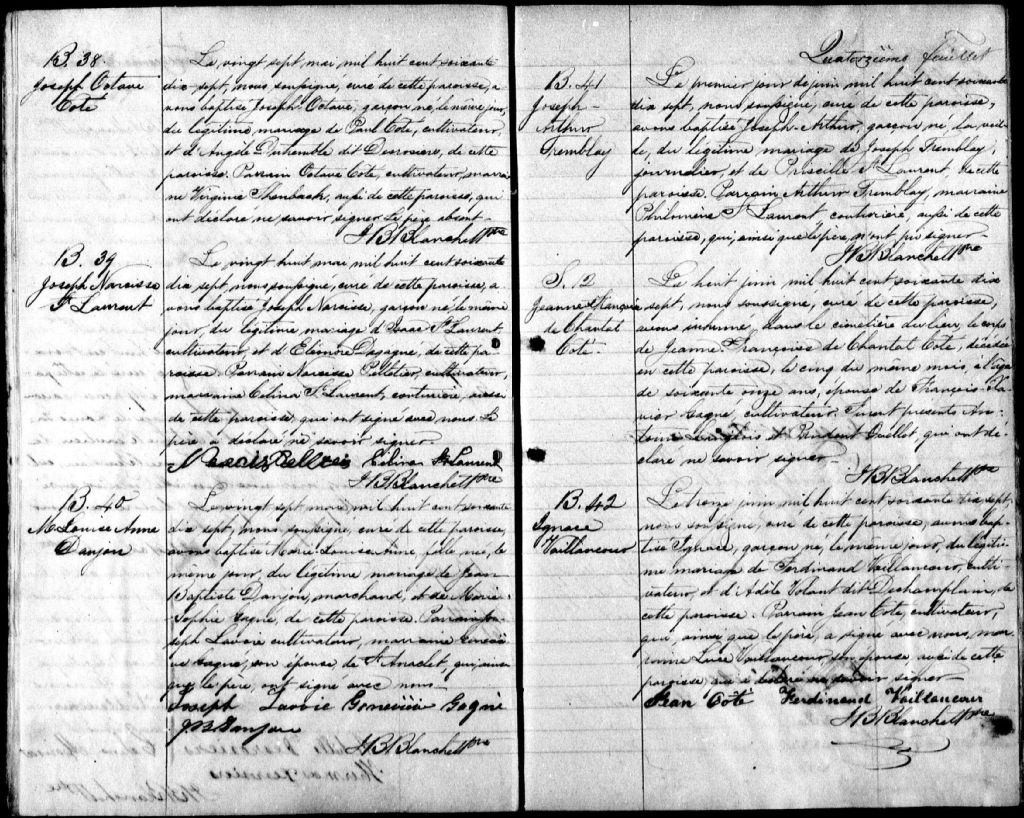 B. 38
Joseph Octave
Coté
Le vingt sept mai mil huit cent soixante
dix-sept, nous soussigné, curé de cette paroisse, a
vons baptisé Joseph Octave, garçon né, le même jour,
du légitime mariage de Paul Coté, cultivateur,
et d'Angèle Duhemble dit Desrosiers, de cette
paroisse. Parrain Octave Coté, cultivateur, marrai
ne Virginie, aussi de cette paroisse, qui
ont déclaré ne savoir signer. Le père absent.
J.B. Blanchett ptre
B. 39
Joseph Narcisse
St Laurent
Le vingt huit mai mil huit cent soixante
dix sept, nous soussigné, curé de cette paroisse, a
vons baptisé Joseph Narcisse, garçon né, le même
jour, du légitime mariage d'Isaac St Laurent
cultivateur, et d'Eléonore Desgagné, de cette pa
roisse. Parrain Narcisse Pelletier, cultivateur,
marraine Célina St Laurent, couturière, aussi
de cette paroisse, qui ont signé avec nous. Le
père a déclaré ne savoir signer.
Célina St Laurent
J.B. Blanchett ptre
B. 40
M. Louise Anne
Danjou
Le vingt sept mai mil huit cent soixante
dix sept, nous, soussigné, curé de cette paroisse,
avons baptisé Marie-Louise Anne, fille née, le
même jour, du légitime mariage de Jean-
Baptiste Danjou, marchand, et de Marie-
Sophie Gagné, de cette paroisse. Parrain Jo-
seph Lavoie cultivateur, marraine Genevie
ve Gagné, son épouse, de St Anaclet, qui, ainsi
que le père, ont signé avec nous.
Joseph Lavoie Genevieve Gagné
J B Danjou
J.B. Blanchett ptre
Quatorzième feuillet
B. 41
Joseph-
Arthur
Tremblay
Le premier jour de juin, mil huit cent soixante
dix sept, nous soussigné, curé de cette paroisse,
avons baptisé Joseph-Arthur, garçon né, la veil-
le, du légitime mariage de Joseph Tremblay,
journalier, et de Priscille St Laurent, de cette
paroisse. Parrain Arthur Tremblay, marraine
Philomène St Laurent couturière, aussi de cette
paroisse, qui, ainsi que le père, n'ont pu signer.
J.B. Blanchett ptre
S. 12
Jeanne Françoise
de Chantal
Coté.
Le huit juin, mil huit cent soixante dix
sept, nous soussigné, curé de cette paroisse,
avons inhumé, dans le cimetière du lieu, le corps
de Jeanne-Françoise de Chantal Coté, décédée
en cette paroisse, le cinq du même mois, à l'âge
de soixante onze ans, épouse de François-Xa-
vier Gagné, cultivateur. Furent présents An-
toine Langlois et Prudent Ouellet, qui ont dé-
claré ne savoir signer.
J.B. Blanchett ptre
B. 42
Ignace
Vaillancour
Le treize juin, mil huit cent soixante dix sept
nous soussigné, curé de cette paroisse, avons bap
tisé Ignace, garçon né, le même jour, du légiti-
me mariage de Ferdinand Vaillancour, culti-
vateur, et d'Adèle Volant dit Deschamplain, de
cette paroisse. Parrain Jean Coté, cultivateur,
qui, ainsi que le père, a signé avec nous, mar
raine Luce Vaillancour, son épouse, aussi de cette
paroisse, qui a déclaré ne savoir signer
Jean Coté Ferdinand Vaillancour
J.B. Blanchett ptre